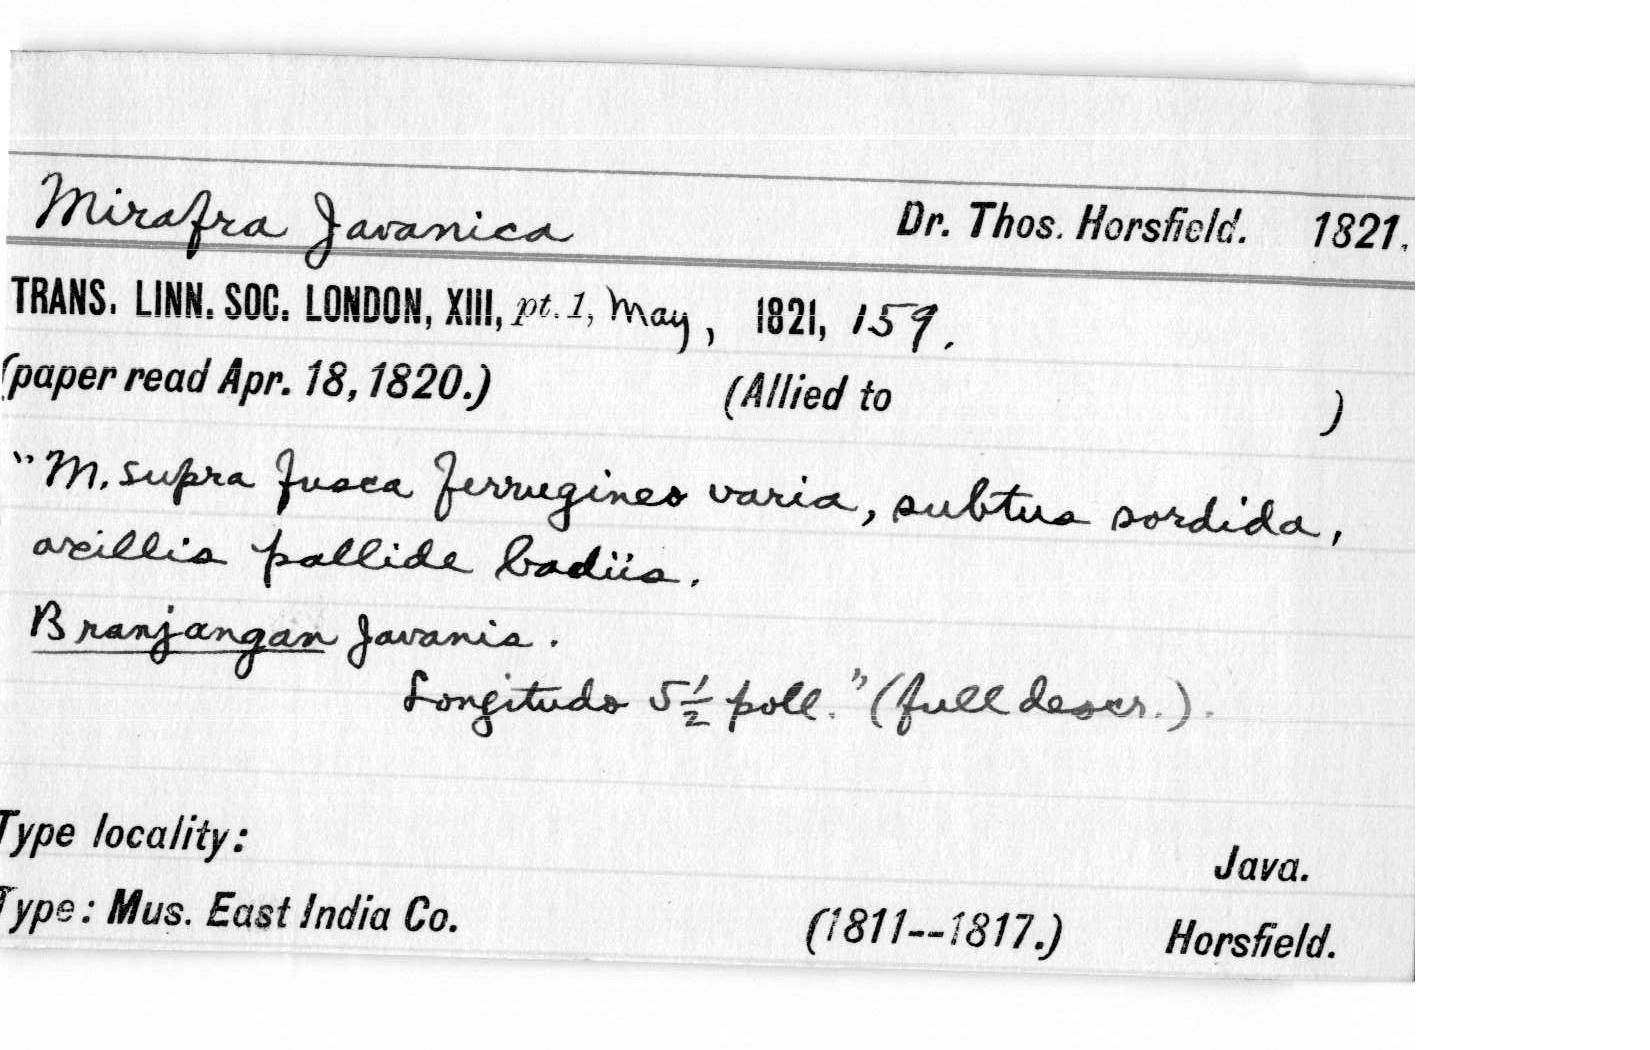 Mirafra Javanica Dr. Thos. Horsfield. 1821.
TRANS. LINN. SOC. LONDON, XIII, pt. 1, May, 1821, 159.
(paper read Apr. 18, 1820.) (Allied to )
"M. supra fusca ferrugineo varia, subtus sordida,
axillis pallide badiis.
Branjangan Javanis.
Longitudo 5½ poll." (full descr.).
Type locality: Java.
Type: Mus. East India Co. (1811--1817.) Horsfield.